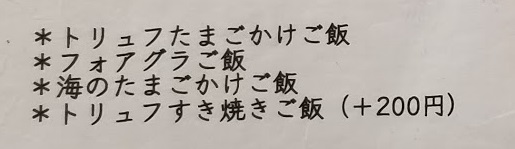 ＊トリュフたまごかけご飯
＊フォアグラご飯
＊海のたまごかけご飯
＊トリュフすき焼きご飯（＋200円）